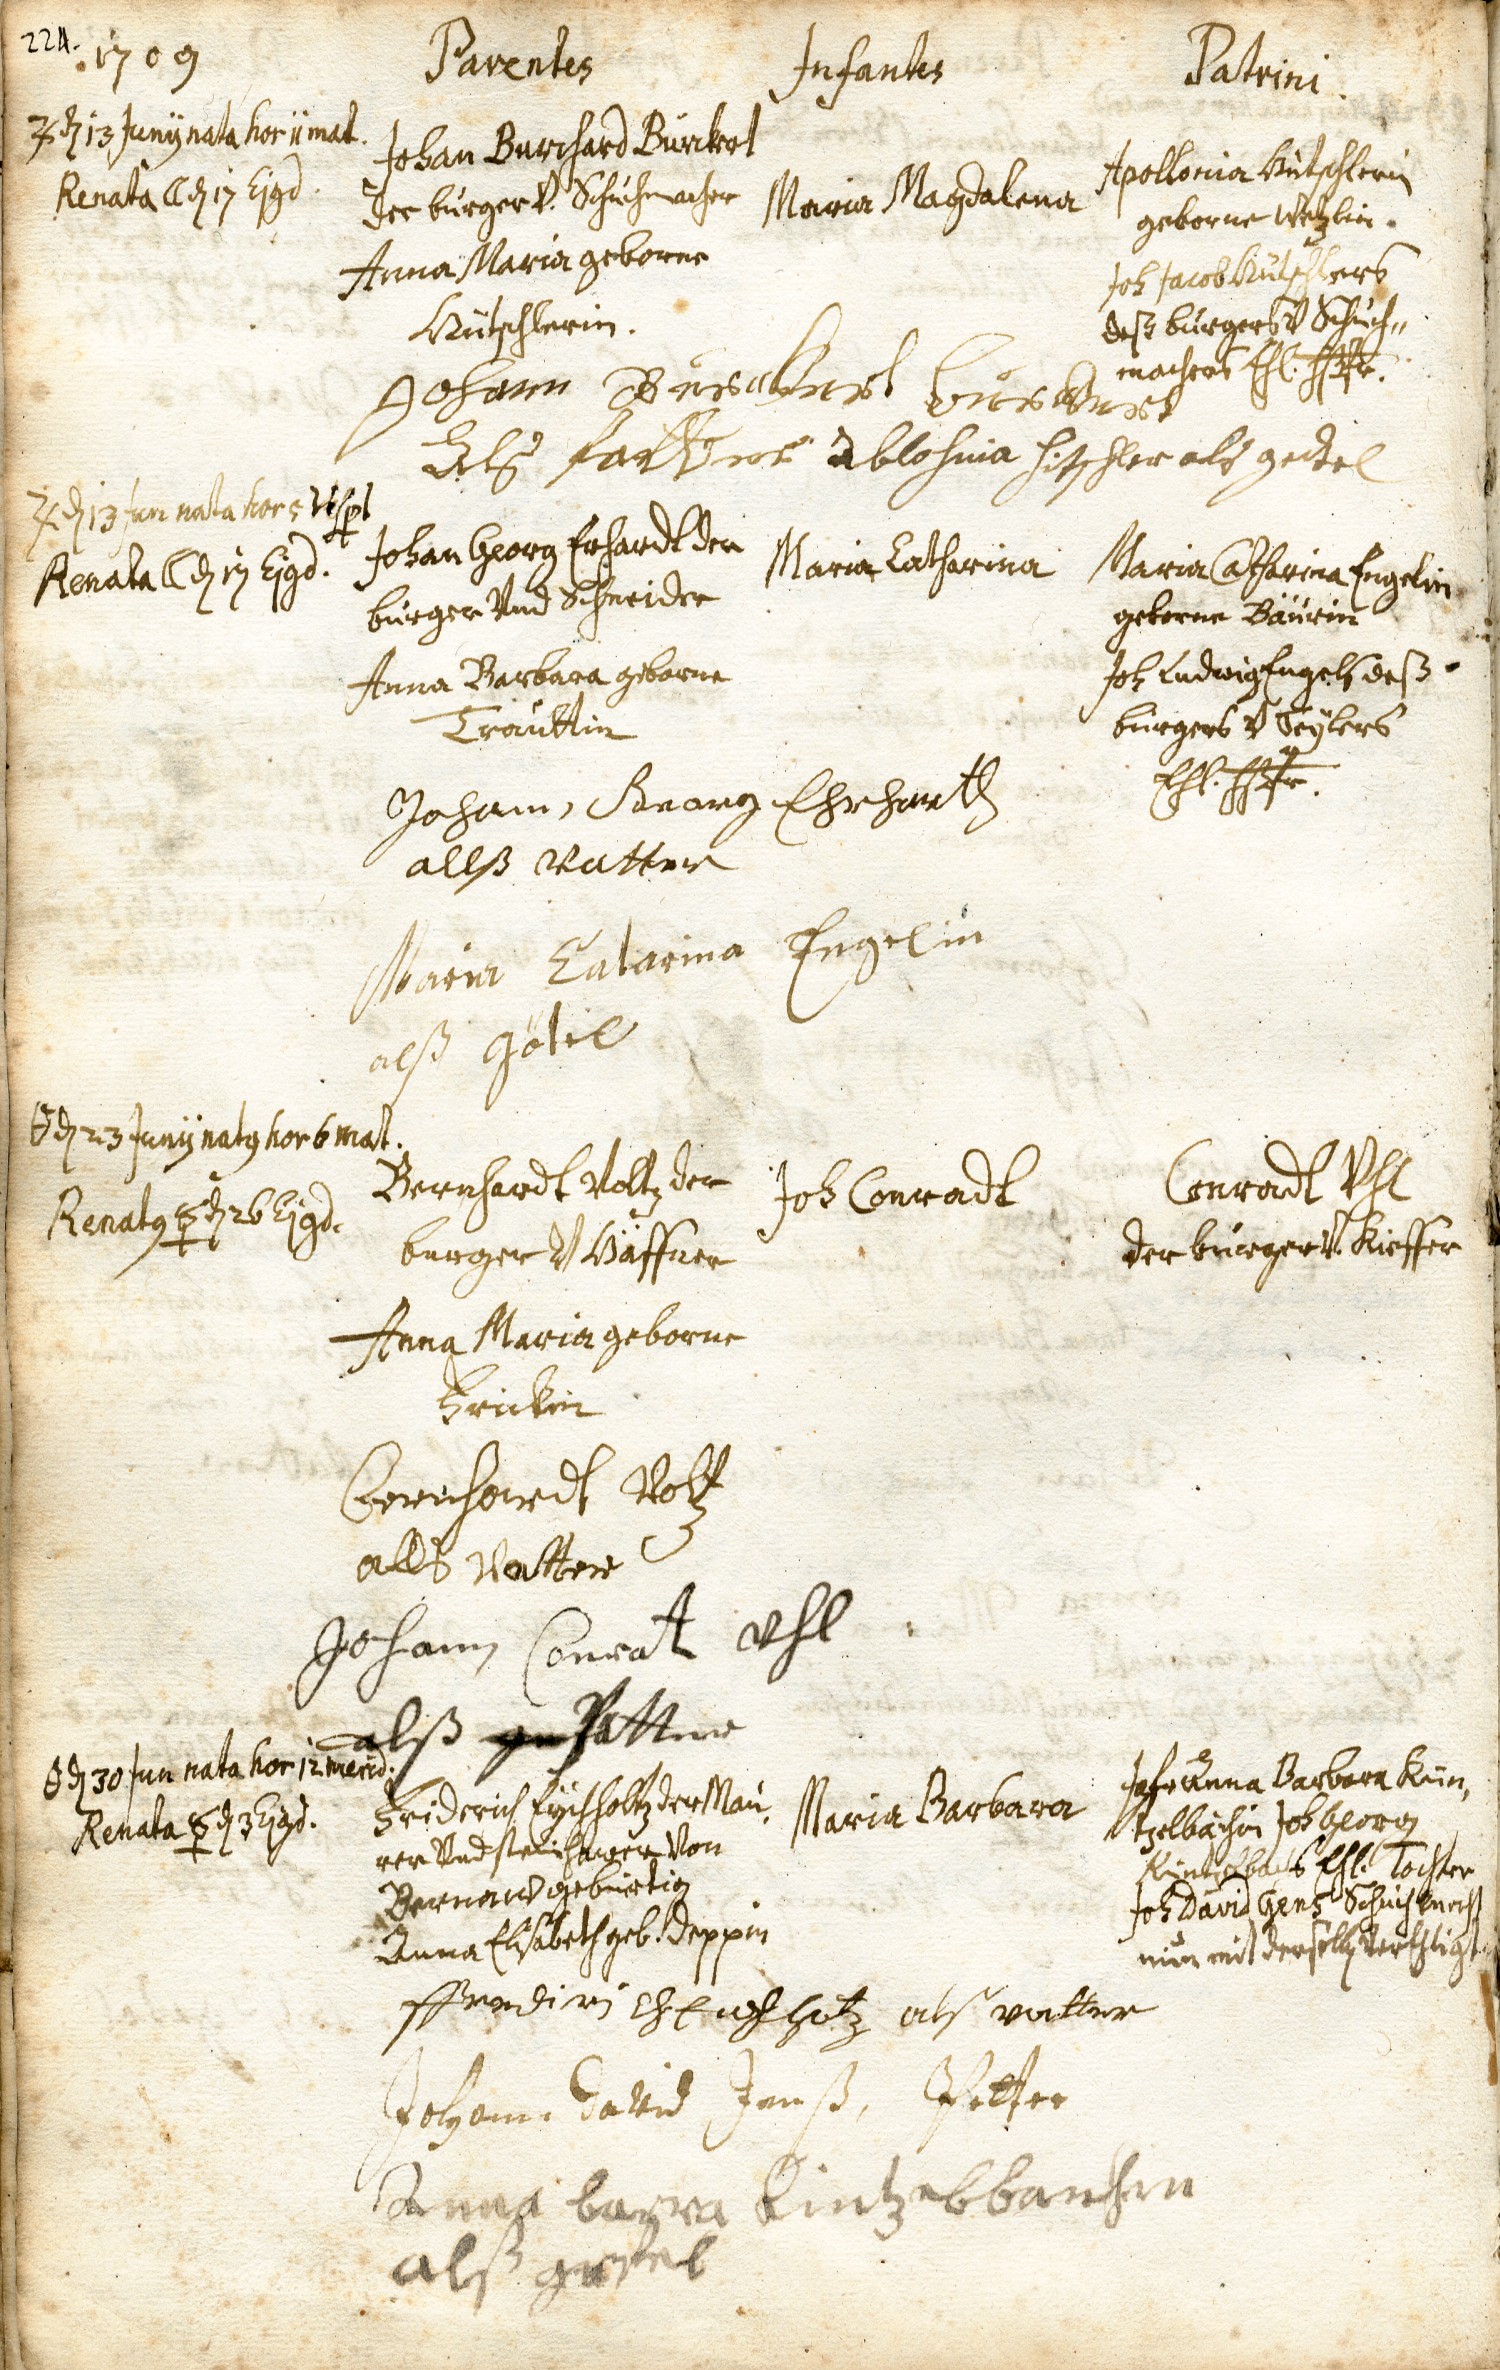 224.
1709
Parentes
Infantes
Patrini.
♃ d 13 Junÿ nata hor 11 mat.
Renata ☾ d 17 Ejgd.
Johan Burchard Burckert
Der burger V. Schuhmacher
Anna Maria geborne
Kütschlerin.
Maria Magdalena
Apollonia Kütschlerin
geborne Wetzlin.
Joh Jacob Kütschlers
deß burgers V Schuch„
machers Ehl.
Johann
Als ablohnia hitschler als gettel
♃ d 13 Jun nata hor 5 Vesp
Renata ☾ d 17 Ejgd.
Johan Georg Erhardt der
burger Vnd Schneider
Anna Barbara geborne
Träuttin
Maria Catharina
Maria Catharina Engelin
geborne Bäurin
Joh Ludwig Engels deß
burgers V Seÿlers
Ehl.
Johann, Georg Ehrharth
allß Vatter
Maria Catarina Engelin
alß götel
d 23 Junÿ nat9 hor 6 mat.
Renat9 ☿ d 26 Ejgd.
Bernhardt Voltz der
burger V Häffner
Anna Maria geborne
Frickin
Joh Conradt
Conradt Vhl
der burger V. Kieffer
Bernhardt Voltz
alls Vatter
Johann Conrat Vhl
alß Pfatter
d 30 Jun nata hor 12 merid.
Renata ☿ d 3 Ejgd.
Friderich Eychholtz der Mau,
rer Vnd Von
gebürtig
Anna Elisabeth geb. Deppin
Maria Barbara
Jgfr Anna Barbara Kün,
tzelbächin Joh Georg
Ehl. Tochter
Joh David Gens Schuchknecht
nun mit derselb verehligt
als vatter
Johann David Jenß, Petter
Anna barbra Kintzelbbachin
alß gettel